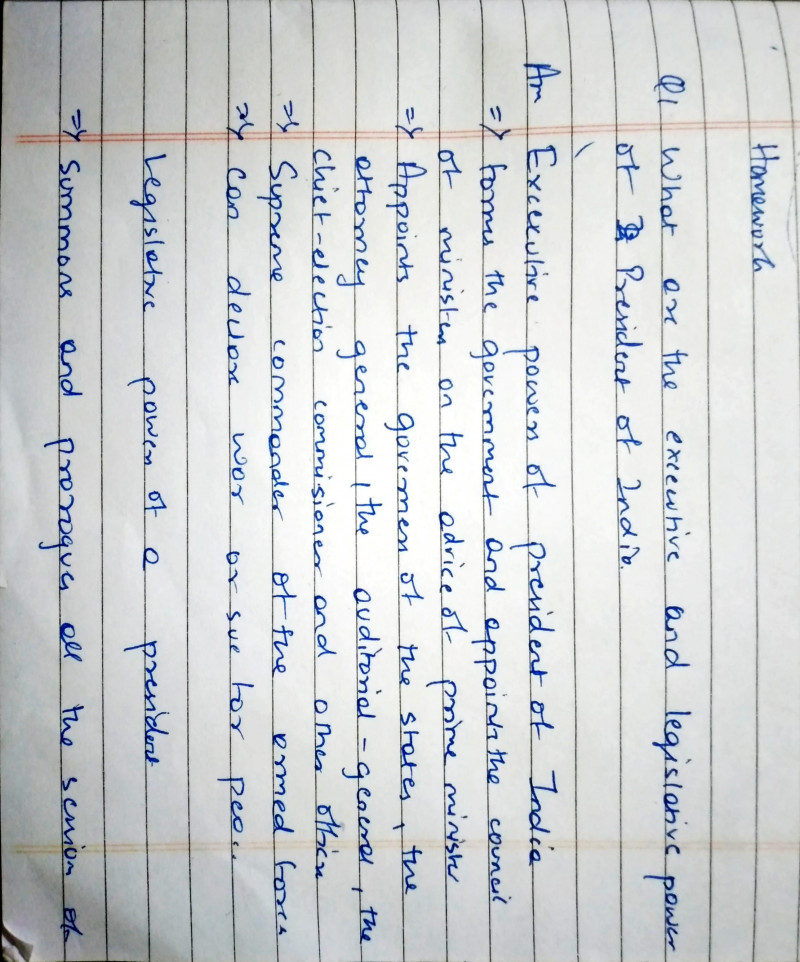 Homework
Q1 What are the executive and legislative power
of President of India.
Ans Excecutive powers of president of India
=> forms the government and appoints the council
of ministers on the advice of prime minister
=> Appoints the governers of the states, the
attorney general, the auditorial - general, the
chief-election commisioner and other offices
=> Supreme commander of the armed forces
=> Can declare war or sue for
Legislative powers of a president
=> Summons and prorogues all the session of